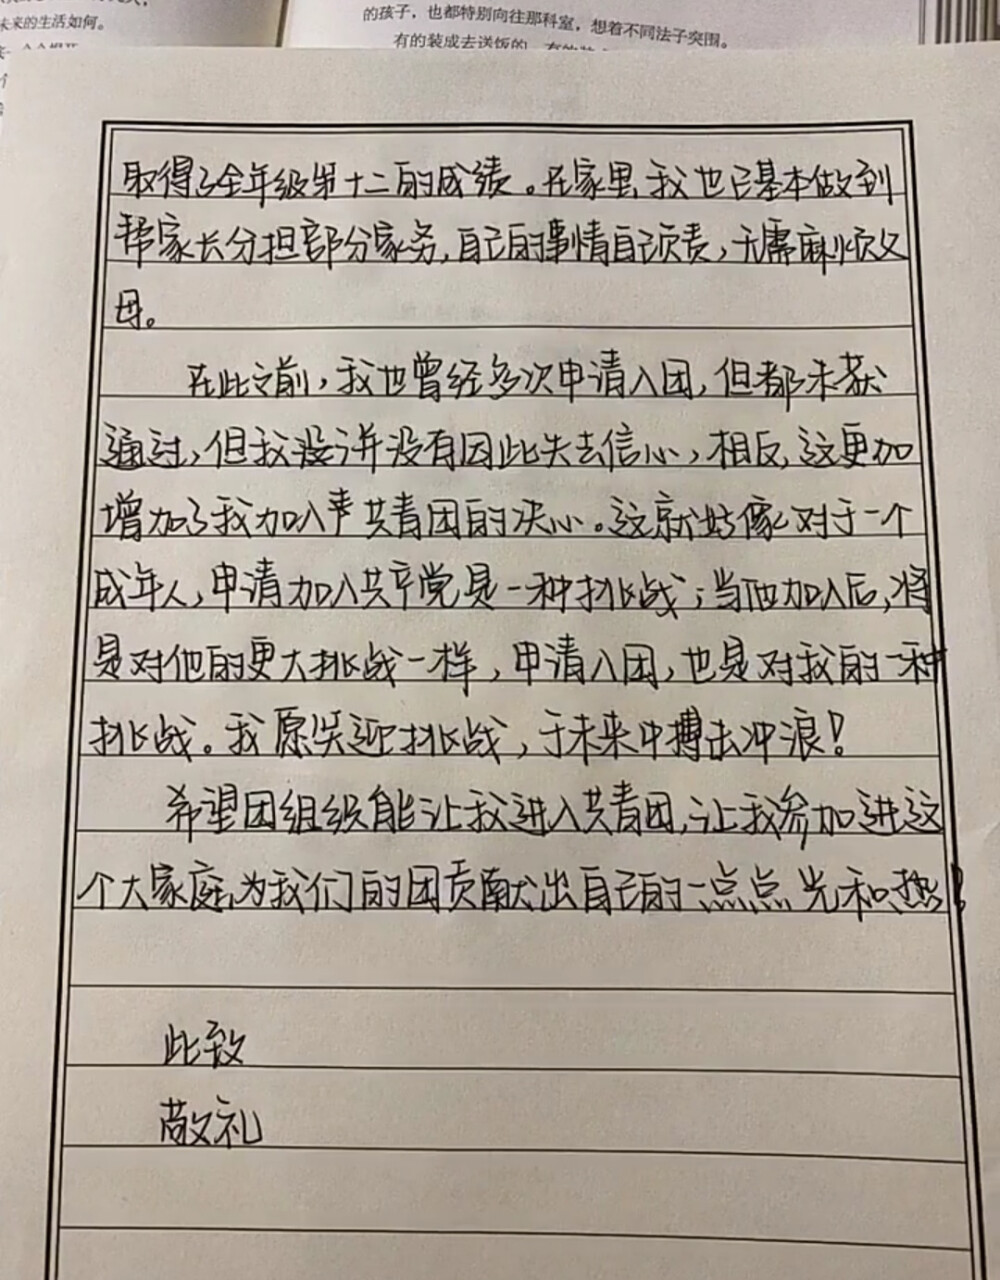 未来的生活如何。
的孩子，也都特别向往那科室，想着不同法子突围。
有的装成去送饭的
取得了全年级第十二的成绩。在家里，我也已基本做到
帮家长分担部分家务，自己的事情自己负责，无需麻烦父
母。
在此之前，我也曾经多次申请入团，但都未获
通过，但我没并没有因此失去信心，相反，这更加
增加了我加入声共青团的决心。这就好像对于一个
成年人，申请加入共产党是一种挑战；当他加入后，将
是对他的更大挑战一样，申请入团，也是对我的一种
挑战。我愿笑迎挑战，于未来中搏击冲浪！
希望团组织能让我进入共青团，让我参加进这
个大家庭，为我们的团贡献出自己的一点点光和热！
此致
敬礼